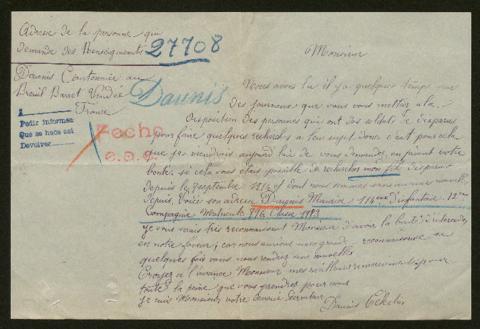 Adresse de la personne qui
demande des Renseignements
27708
Daunis Cantonnier au
Breuil Barret Vendée
France
Daunis
Pedir informes
Que se haga así
Devolver
Fecho
Monsieur
Nous avons lu il y a quelques temps sur
des journaux que vous vous mettiez à la
disposition des personnes qui ont des soldats de disparus
pour faire quelques recherches à leur sujet donc c'est pour cela
que je viendrais aujourd'hui de vous demander, en priant votre
bonté si cela vous était possible de rechercher mon fils disparu
depuis le Septembre 1914 et dont nous sommes sans aucune nouvelle
depuis. Voici son adresse Daunis Maurice 114eme d'infanterie 12eme
Compagnie Matricule Classe 1913
je vous serais très reconnaissant Monsieur d'avoir la bonté d'intercéder
en notre faveur, car nous aurions une grande reconnaissance si
quelques fois vous nous rendiez ses nouvelles
Croyez à l'avance Monsieur mes meilleurs remerciements pour
toute la peine que vous prendrez pour nous
je suis Monsieur votre dévoué Serviteur
Daunis